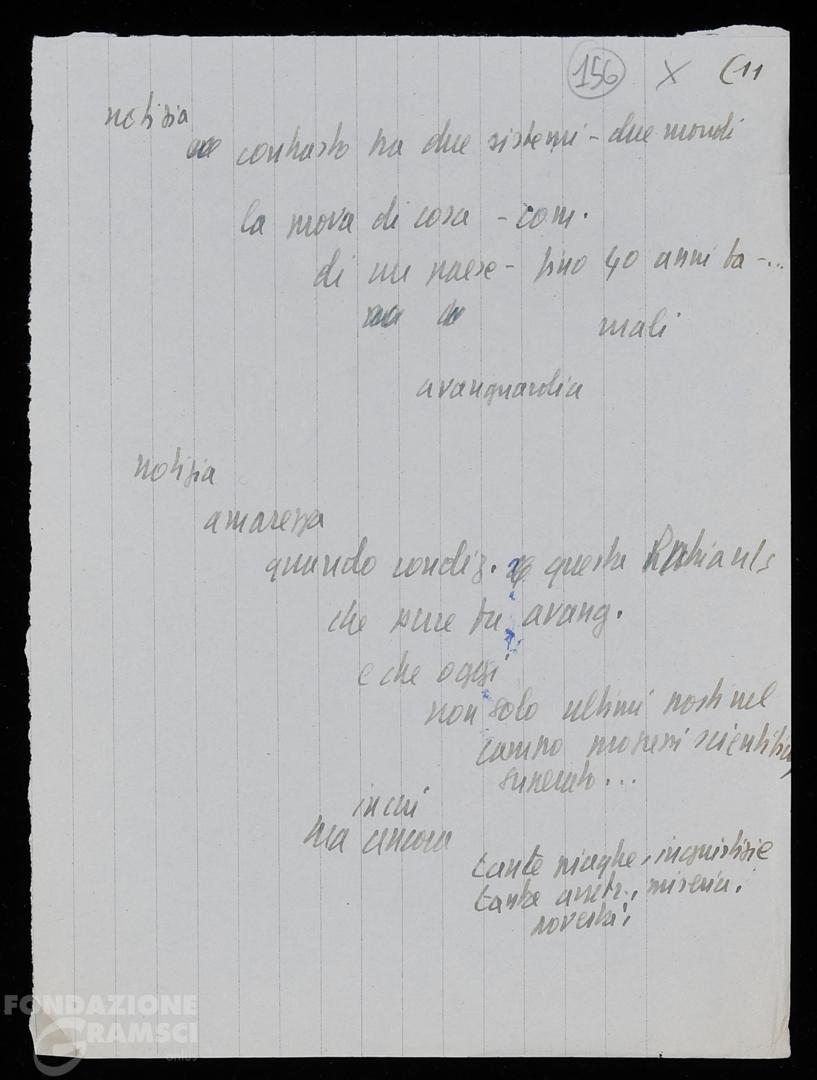 156 X (11
notizia
contrasto tra due sistemi - due mondi
la prova di cosa - com.
di un paese - fino 40 anni fa -...
mali
avanguardia
notizia
amarezza
quando condiz. questa
che pure fu avang.
e che oggi
non solo ultimi posti nel
campo progressi scientifici
superato...
in cui
ma ancora
tante piaghe, ingiustizie
tanta arretr., miseria.
povertà,
FONDAZIONE
GRAMSCI
onlus